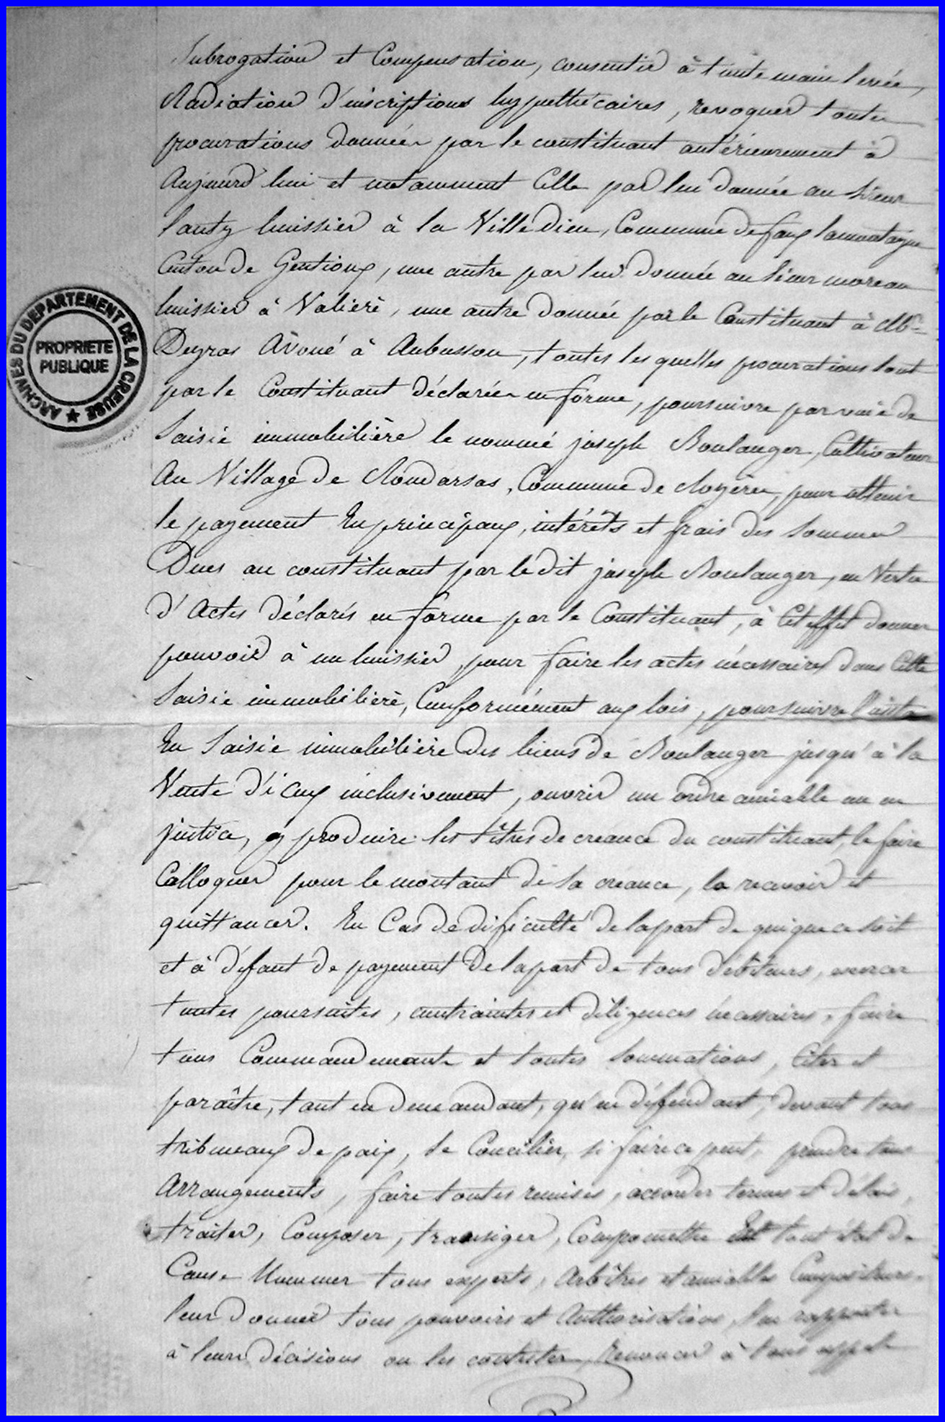 Subrogation et Compensation, consentir à toute main levée,
Radiation d'inscriptions hyppothécaires, revoquer toutes
procurations données par le constituant antérieurement à
Aujourd'hui et notamment Celle par lui donnée au Sieur
huissier à la Villedieu, Commune de faux lamontagne
Canton de Gentioux, une autre par lui donnée au Sieur moreau
huissier à Valière, une autre donnée par le Constituant à Me
Deyras Avoué à Aubusson, toutes lesquelles procurations sont
par le Constituant déclarées en forme, poursuivre par voie de
Saisie immobilière le nommé joseph Boulanger, Cultivateur
Au Village de Commune de pour obtenir
le payement En principaux, intérêts et frais des Sommes
Dues au constituant par le dit joseph Boulanger, en Vertu
d'Actes déclarés en forme par le Constituant, à Cet effet donner
pouvoir à un huissier pour faire les actes nécessaires dans Cette
Saisie immobilière, Conformément aux lois, poursuivre
En Saisie immobilière des biens de Boulanger jusqu'à la
Vente d'iceux inclusivement, ouvrir un ordre amiable ou en
justice, y produire les titres de creance du constituant, le faire
Colloquer pour le montant de sa creance, la recevoir et
quittancer. En Cas de dificulté de la part de qui que ce soit
et à défaut de payement de la part de tous débiteurs, exercer
toutes poursuites, contraintes et diligences nécessaires, faire
tous Commandements et toutes Sommations, Citer et
paraître, tant en demandant, qu'en défendant, devant tous
tribunaux de paix, Se Concilier, si faire ce peut, prendre tous
Arrangements, faire toutes remises, accorder termes et délais,
traiter, Composer, transiger, Compromettre En tout état de
Cause Nommer tous experts, Arbitres et amiables Compositeurs
leur donner tous pouvoirs et Authorisations, S'en rapporter
à leurs décisions ou les contester, Renoncer à tous appels
ARCHIVES DU DEPARTEMENT DE LA CREUSE
PROPRIETE
PUBLIQUE